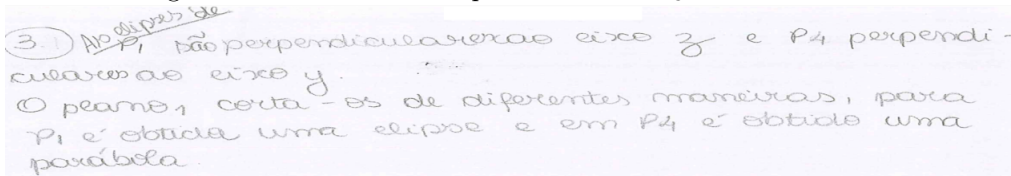 3. As elipses de
P1 são perpendiculares ao eixo z e P4 perpendi-
culares ao eixo y.
O plano, corta-os de diferentes maneiras, para
P1 é obtida uma elipse e em P4 é obtido uma
parábola.